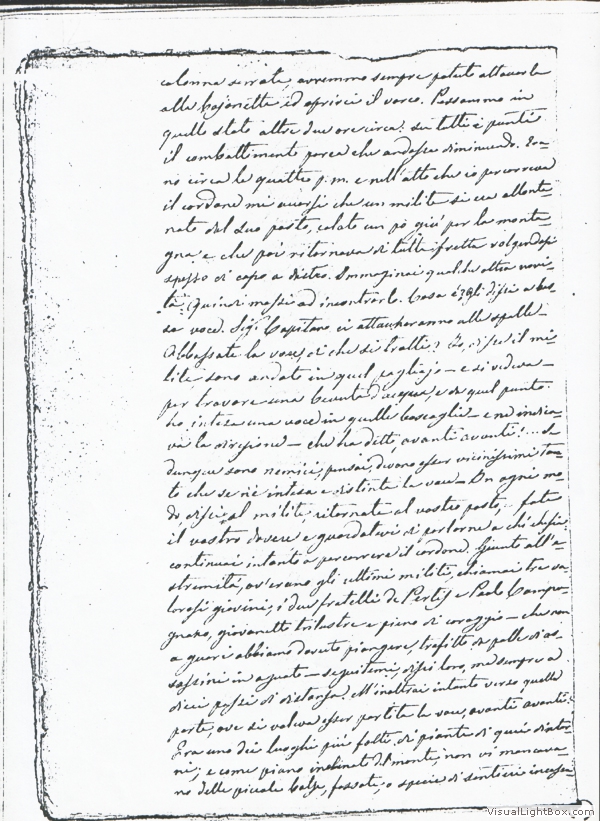 colonna serrata, avremmo sempre potuto attaccarla
alla bajonetta ed aprirci il varco. Passammo in
quello stato altre due ore circa: su tutti i punti
il combattimento parea che andasse diminuendo. Era-
no circa le quattro p. m. e nell'atto che io percorreva
il cordone mi accorsi che un milite si era allonta-
nato dal suo posto, calato un pò giù per la monta-
gna, e che poi ritornava di tutta fretta volgendosi
spesso di capo a dietro. Immaginai qualche altra novi-
tà; quindi mossi ad incontrarlo. Cosa è? gli dissi a bas-
sa voce. Sig. Capitano ci attaccheranno alle spalle—
Abbassate la voce, di che si tratta? Io, disse il mi-
lite sono andato in quel pagliajo— e si vedeva—
per trovare una bevuta d'acqua, e da quel punto
ho intesa una voce in quelle boscaglie— e ne indica-
va la direzione— che ha detto, avanti avanti!...
dunque sono nemici, pensai, devono esser vicinissimi tan-
to che se n'è intesa e distinta la voce— In ogni mo-
do, dissi al milite, ritornate al vostro posto,... fate
il vostro dovere e guardatevi di parlarne a chi chefia:
continuai intanto a percorrere il cordone. Giunto all'e-
stremità, ov'erano gli ultimi militi, chiamai tre va-
lorosi giovini; i due fratelli de Pertis e Paolo Campa-
gnano, giovanetto trilustre e pieno di coraggio— che non
a guari abbiamo dovuto piangere, trafitto da palle di as-
sassini in aguato— seguitemi, dissi loro, ma sempre a
dieci passi di distanza. M'inoltrai intanto verso quella
parte, ove si voleva esser partita la voce, avanti, avanti.
Era uno dei luoghi più folti di piante di quei dintor-
ni; e come piano inclinato del monte, non vi mancava-
no delle piccole balze, fossate, o specie di sentieri incassa-
VisualLightBox.com